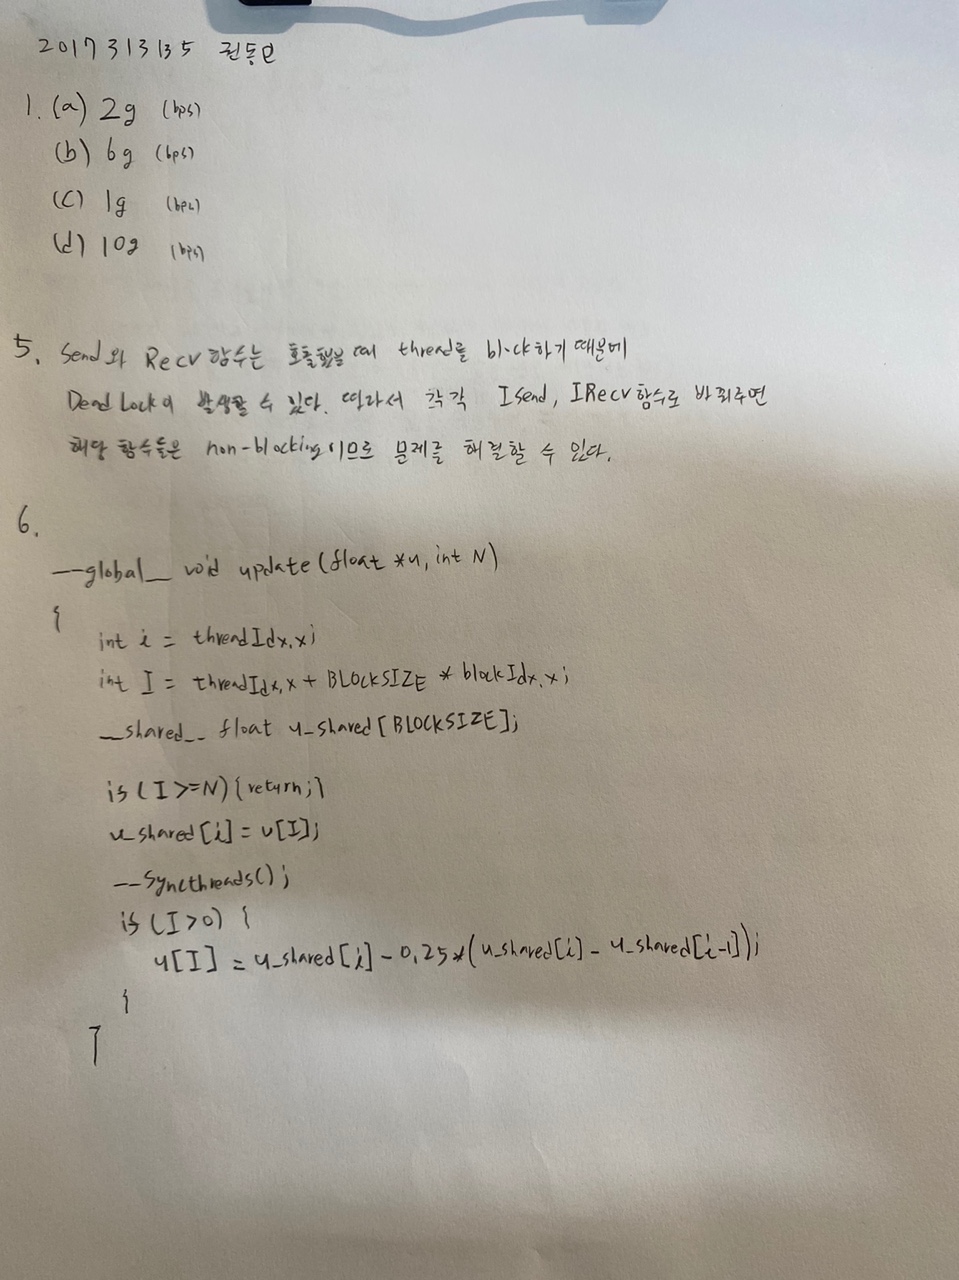 2017313135 권동민
1. (a) 2g (bps)
(b) 6g (bps)
(c) 1g (bps)
(d) 10g (bps)
5. Send와 Recv 함수는 호출했을 때 thread를 block하기 때문에
Dead Lock이 발생할 수 있다. 따라서 각각 Isend, IRecv함수로 바꿔주면
해당 함수들은 non-blocking이므로 문제를 해결할 수 있다.
6.
__global__ void update(float *u, int N)
{
int i = threadIdx.x;
int I = threadIdx.x + BLOCKSIZE * blockIdx.x;
__shared__ float u_shared[BLOCKSIZE];
if (I>=N){return;}
u_shared[i] = u[I];
__syncthreads();
if (I>0) {
u[I] = u_shared[i] - 0.25*(u_shared[i] - u_shared[i-1]);
}
}